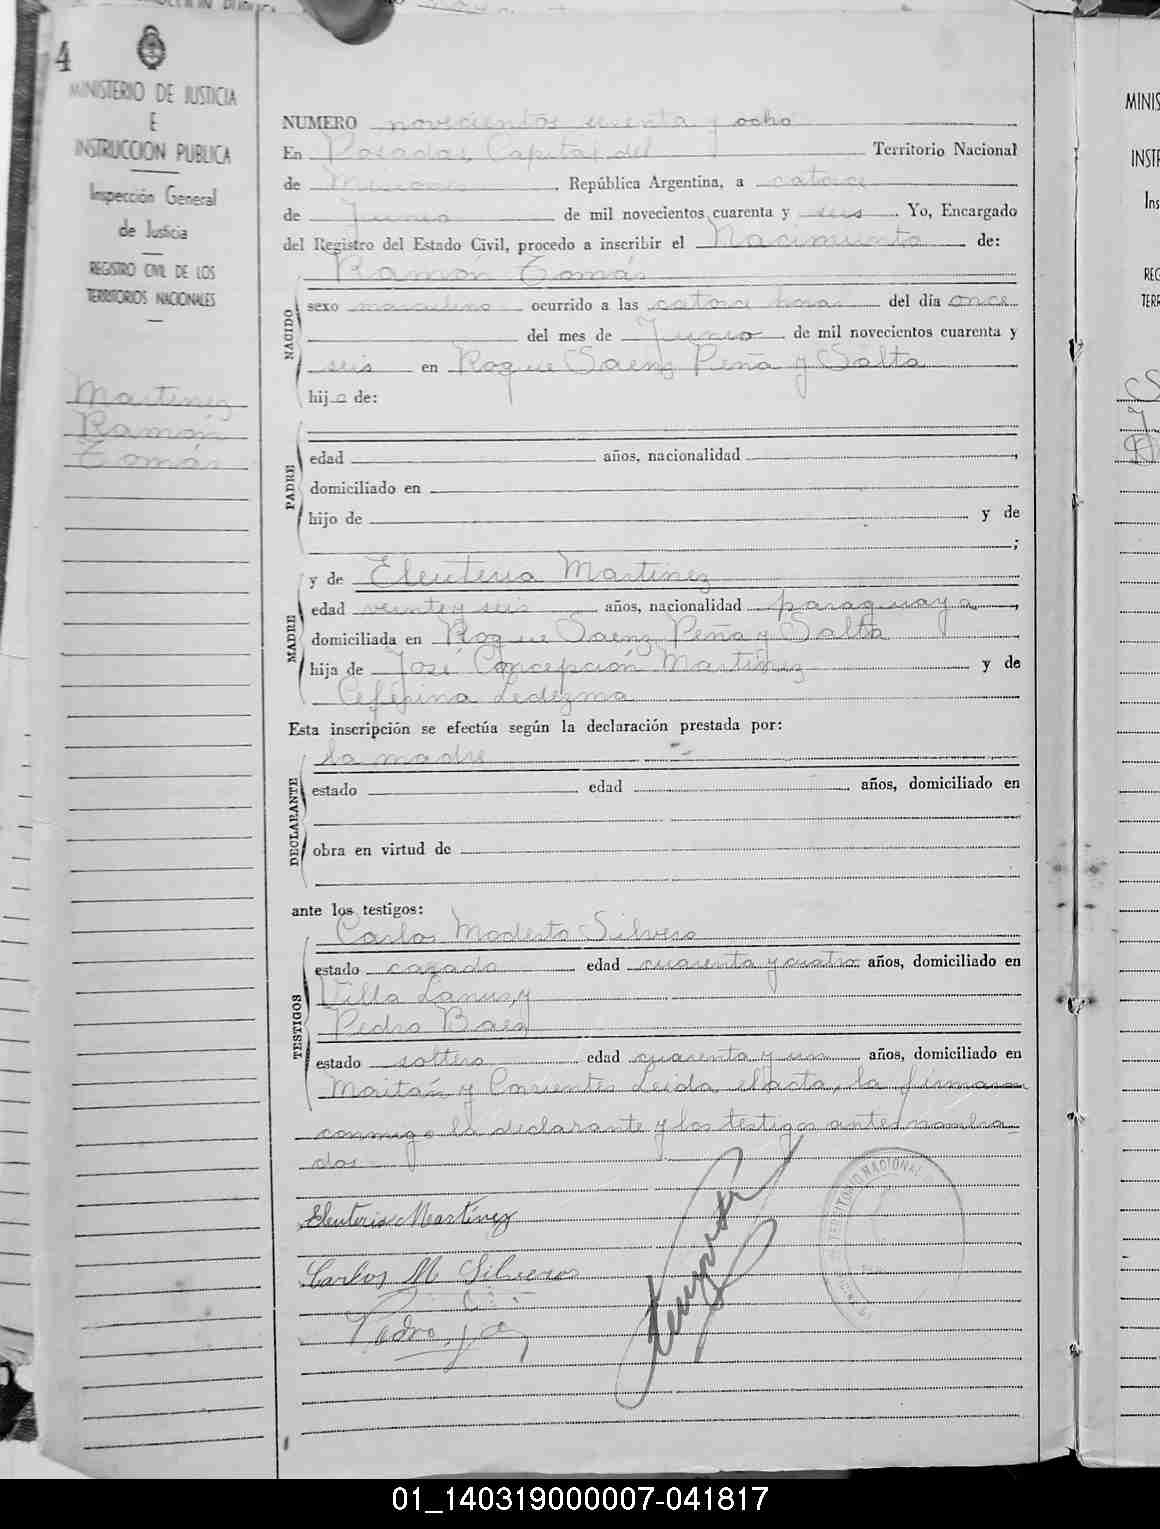 4
MINISTERIO DE JUSTICIA
E
INSTRUCCION PUBLICA
Inspección General
de Justicia
REGISTRO CIVIL DE LOS
TERRITORIOS NACIONALES
Martinez
Ramón
Tomás
NUMERO novecientos y ocho
En Posadas, Capital del Territorio Nacional
de Misiones, República Argentina, a catorce
de Junio de mil novecientos cuarenta y seis. Yo, Encargado
del Registro del Estado Civil, procedo a inscribir el Nacimiento de:
NACIDO
Ramón Tomás
sexo masculino ocurrido a las catorce horas del día once
del mes de Junio de mil novecientos cuarenta y
seis en Roque Saenz Peña y Salta
hijo de:
PADRE
edad años, nacionalidad ,
domiciliado en
hijo de y de
;
MADRE
y de Eleuteria Martinez
edad veinte y seis años, nacionalidad paraguaya,
domiciliada en Roque Saenz Peña y Salta
hija de José Concepción Martinez y de
Ceferina Ledezma
Esta inscripción se efectúa según la declaración prestada por:
DECLARANTE
la madre
estado edad años, domiciliado en
obra en virtud de
ante los testigos:
TESTIGOS
Carlos Modesto Silvero
estado casado edad cuarenta y cuatro años, domiciliado en
Villa Lanus, y
Pedro Baez
estado soltero edad cuarenta y un años, domiciliado en
Maitán y Corrientes Leida el acta, la firmaron
conmigo la declarante y los testigos antes nombra-
dos
Eleuteria Martínez
Carlos M Silveros
Pedro
TERRITORIO NACIONAL
MINIS
INSTR
Ins
REG
TERR
01_140319000007-041817